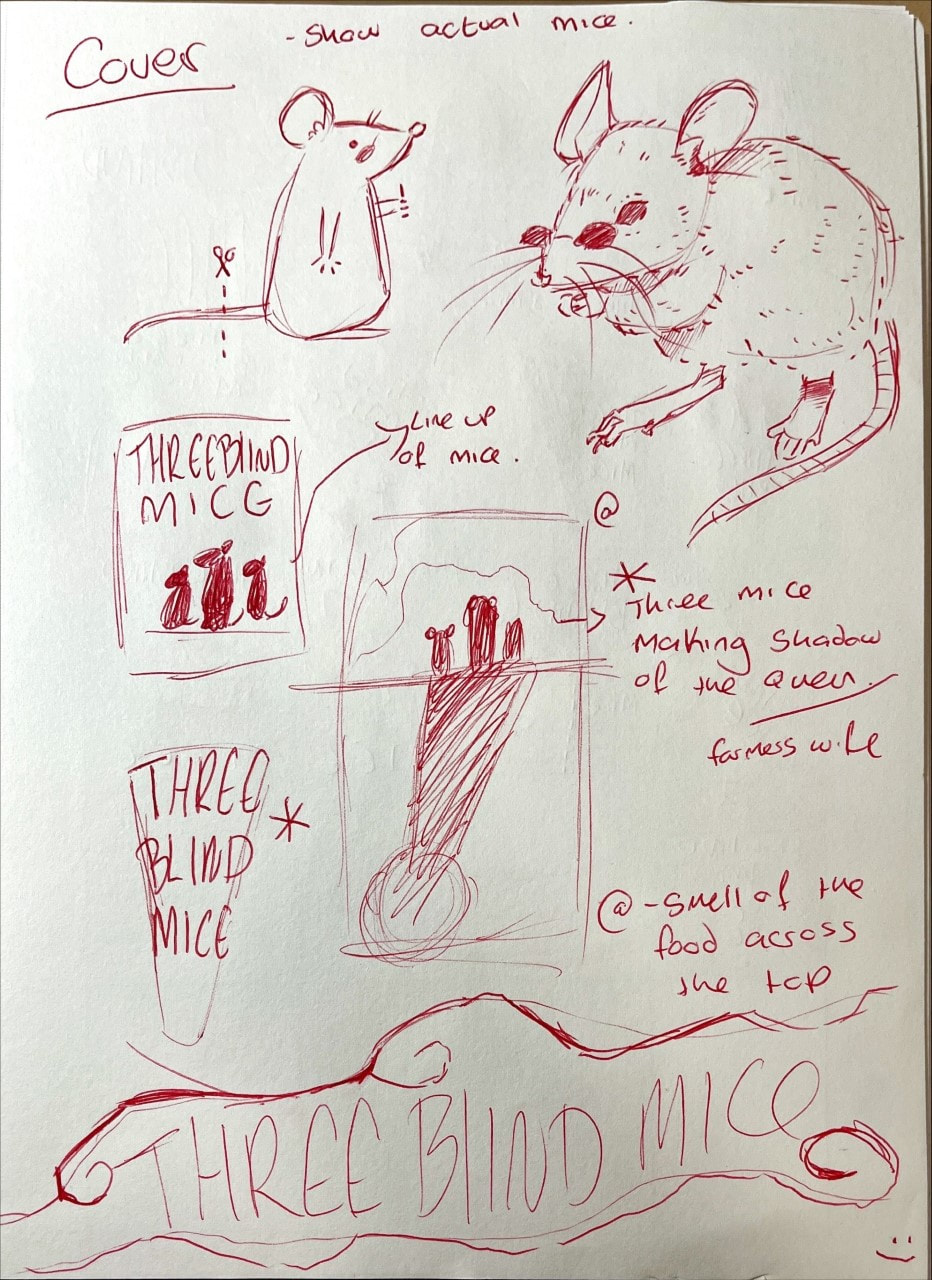 Cover
- Show actual mice.
Line up
of mice.
THREE BLIND
MICE
@
* Three mice
Making Shadow
of the Queen.
farmess wife
THREE
BLIND
MICE
*
@ - Smell of the
food across
the top
THREE BLIND MICE